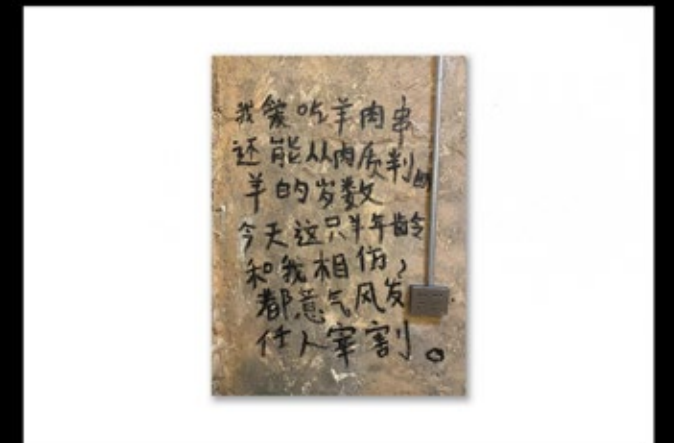 我爱吃羊肉串
还能从肉质判断
羊的岁数
今天这只羊年龄
和我相仿，
都意气风发
任人宰割。